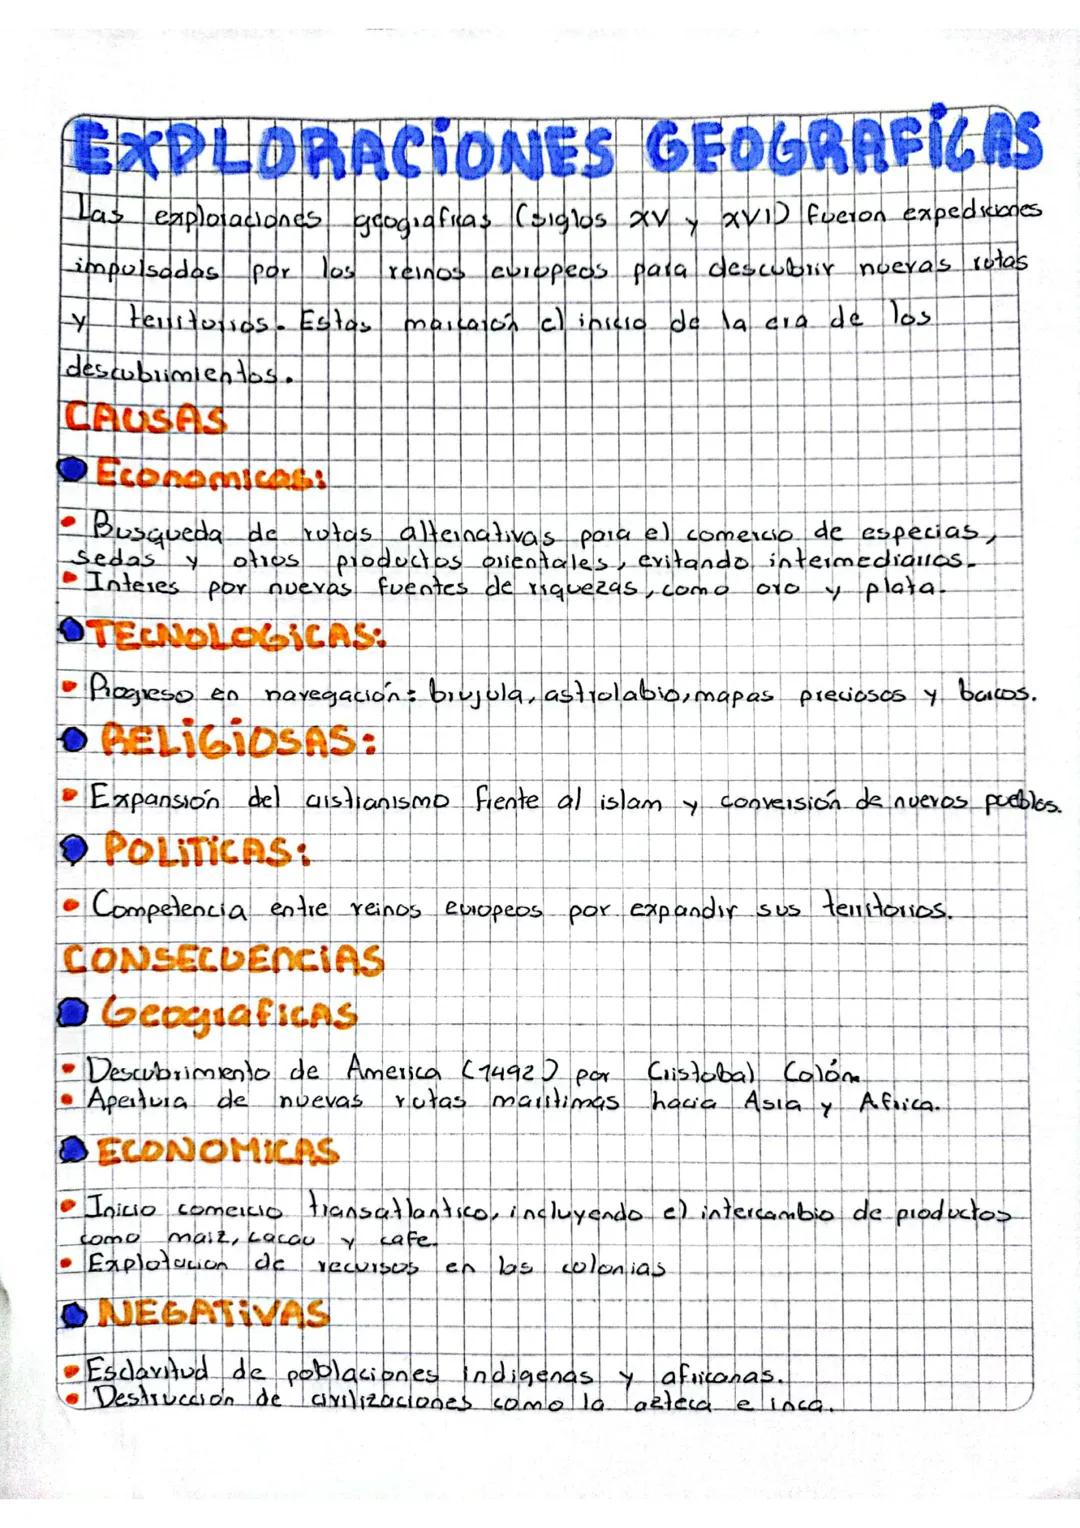 EXPLORACIONES GEOGRAFICAS
Las exploraciones geograficas (siglos XV y XVI) fueron expediciones
impulsadas por los reinos europeos para descubrir nuevas rotas
y territorios. Estas marcarón el inicio de la era de los
descubrimientos.
CAUSAS
Economicas:
Busqueda de rutas alternativas para el comercio de especias,
sedas y otros productos orientales, evitando intermediarios.
Interes por nuevas fuentes de riquezas, como oro y plata.
TECNOLOGICAS:
Progreso en navegación: brujula, astrolabio, mapas preciosos y barcos.
RELIGIOSAS:
Expansión del cristianismo frente al islam y conversión de nuevos pueblos.
POLITICAS:
Competencia entre reinos europeos por expandir sus territorios.
CONSECUENCIAS
Geograficas
Descubrimiento de America (1492) por Cristobal Colón
Apertura de nuevas rutas maritimas hacia Asia y Africa.
ECONOMICAS
Inicio comercio transatlantico, incluyendo el intercambio de productos
como maiz, cacau y cafe.
Explotacion de recursos en las colonias
NEGATIVAS
Esclavitud de poblaciones indigenas y africanas.
Destrucción de civilizaciones como la azteca e inca.